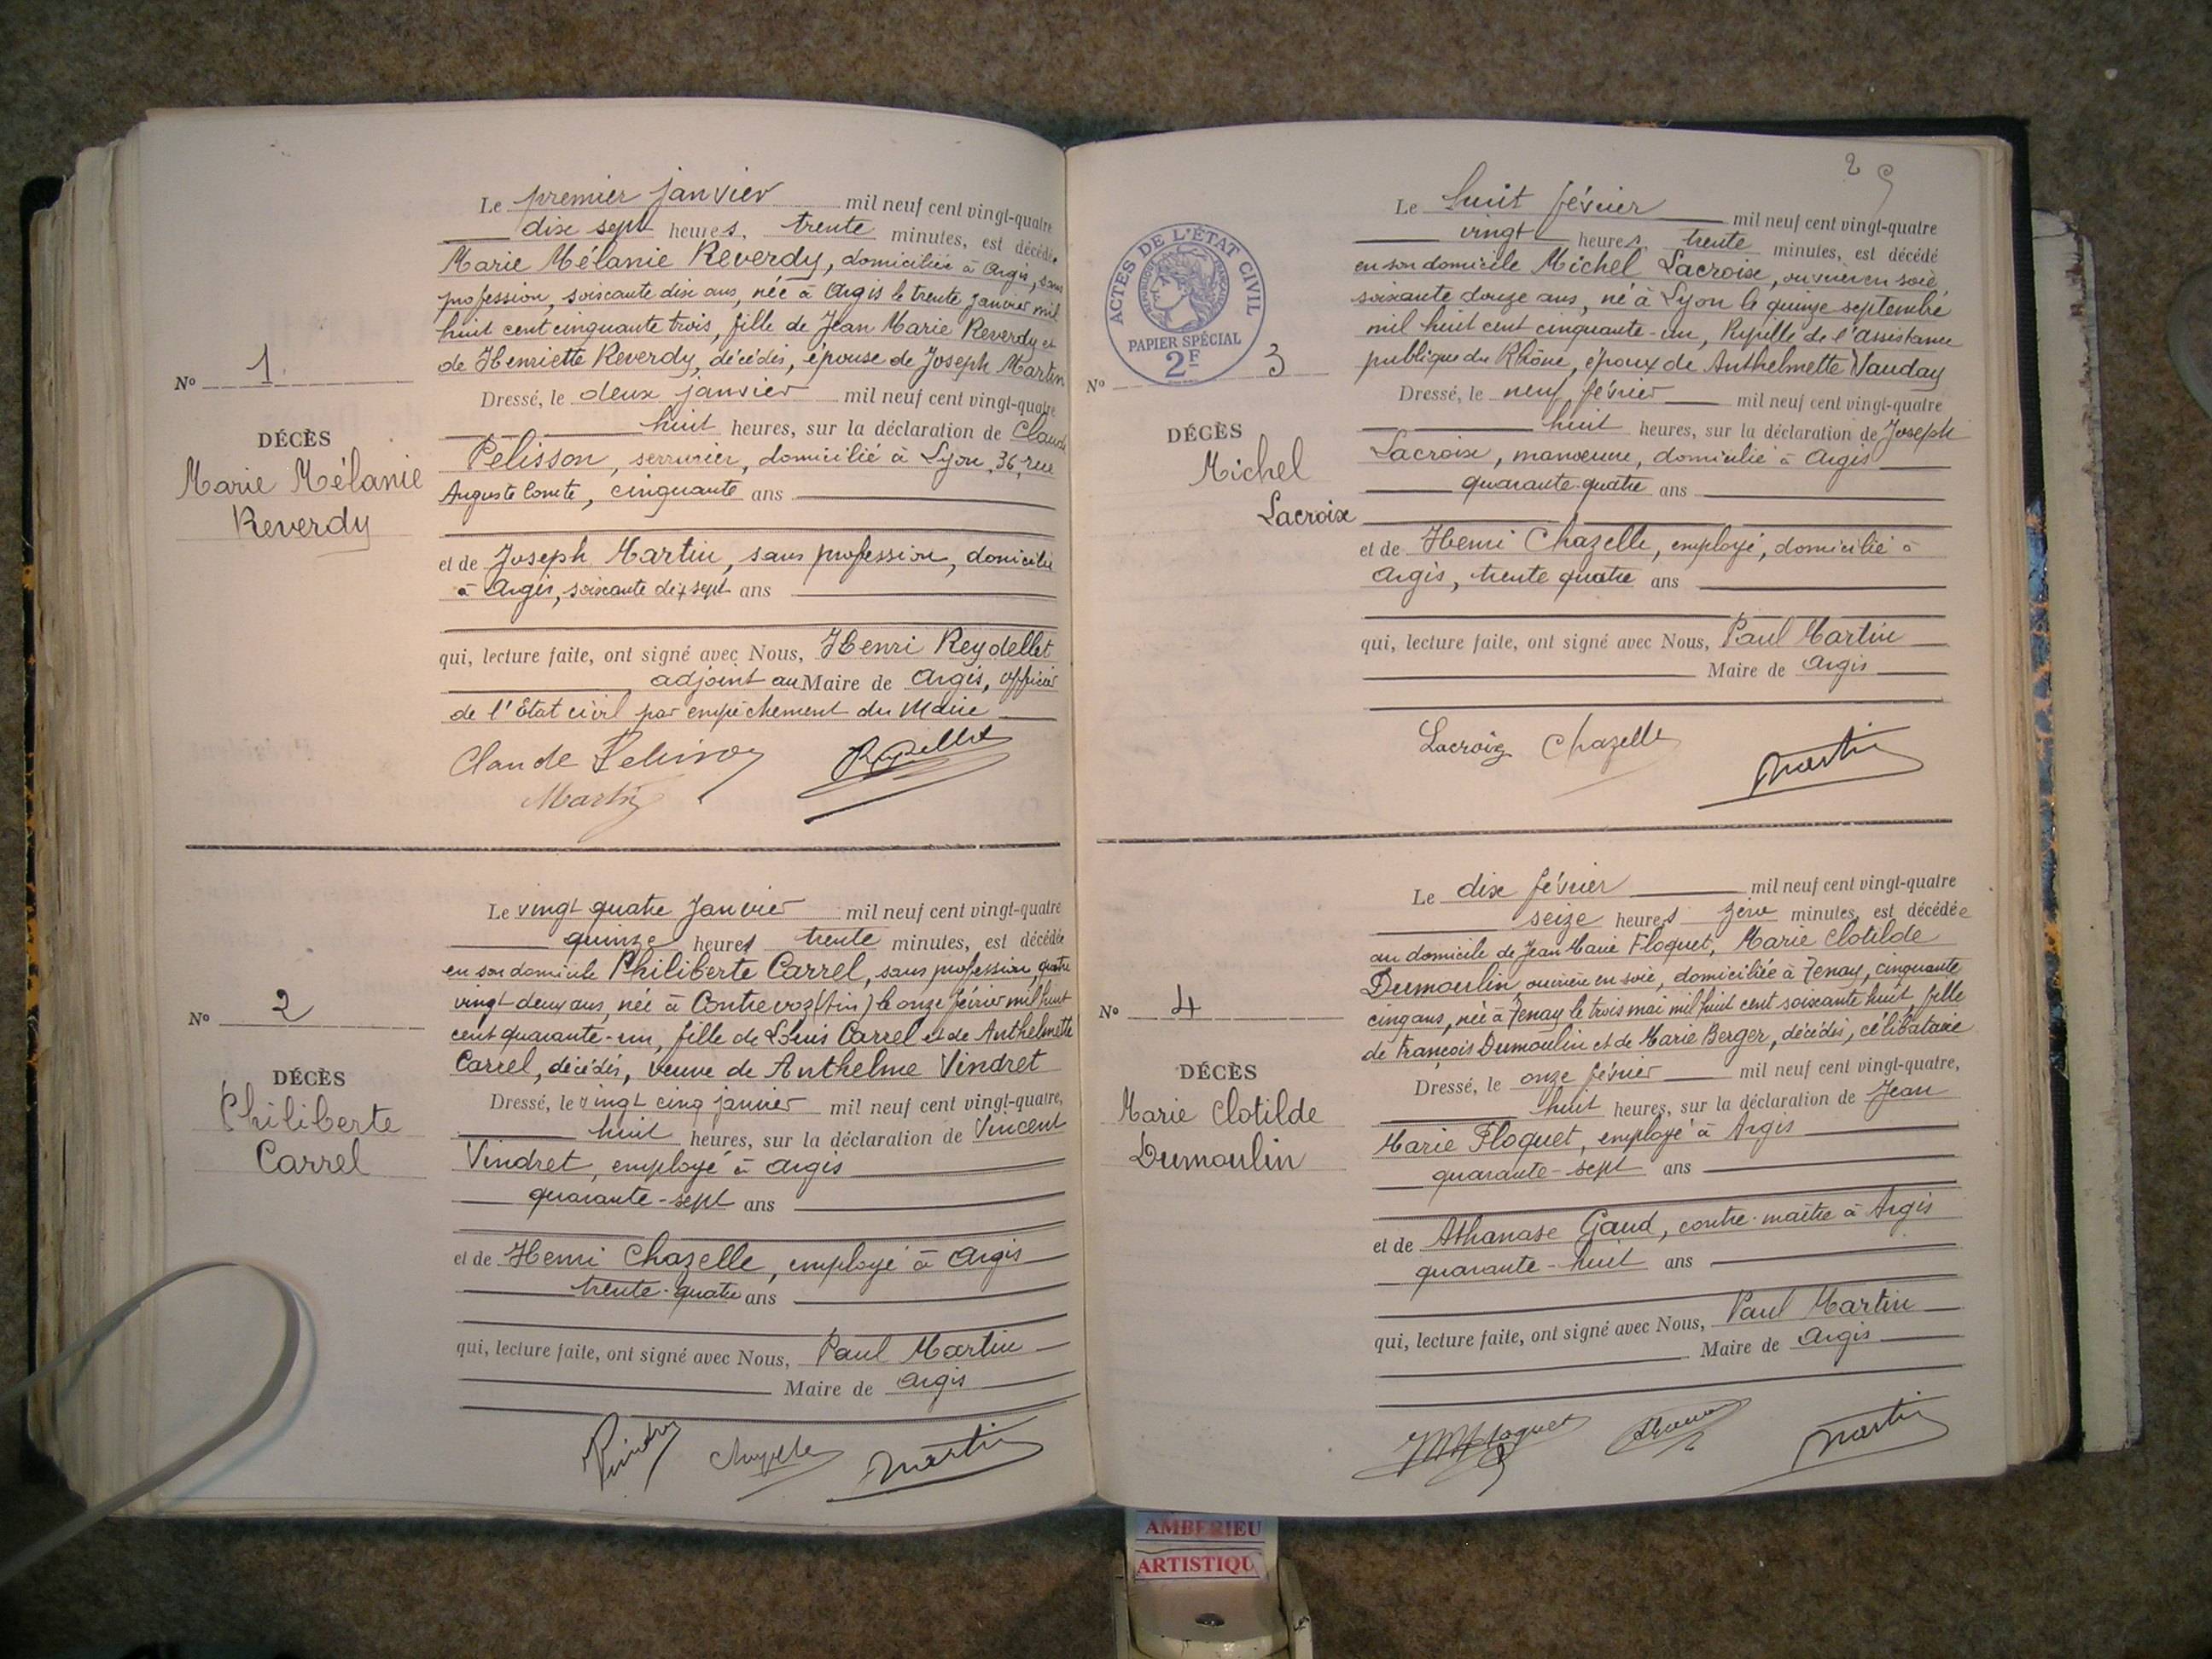 Le premier janvier mil neuf cent vingt-quatre
dix sept heures, trente minutes, est décédée
Marie Mélanie Reverdy, domiciliée à Argis, sans
profession, soixante dix ans, née à Argis le trente janvier mil
huit cent cinquante trois, fille de Jean Marie Reverdy et
de Henriette Reverdy, décédés, épouse de Joseph Martin
Nº 1
Dressé, le deux janvier mil neuf cent vingt-quatre
huit heures, sur la déclaration de Claude
DÉCÈS
Pelisson, serrurier, domicilié à Lyon, 36, rue
Marie Mélanie
Auguste Comte, cinquante ans
Reverdy
et de Joseph Martin, sans profession, domicilié
à Argis, soixante dix sept ans
qui, lecture faite, ont signé avec Nous, Henri Reydellet
adjoint au Maire de Argis, officier
de l'Etat civil par empêchement du Maire
Claude Pelisson
Martin
Le vingt quatre Janvier mil neuf cent vingt-quatre
quinze heures trente minutes, est décédée
en son domicile Philiberte Carrel, sans profession, quatre
vingt deux ans, née à Contrevoz (Ain) le onze février mil huit
cent quarante-un, fille de Louis Carrel et de Anthelmette
Carrel, décédés, veuve de Anthelme Vindret
Nº 2
DÉCÈS
Philiberte
Carrel
Dressé, le vingt cinq janvier mil neuf cent vingt-quatre,
huit heures, sur la déclaration de Vincent
Vindret, employé à Argis
quarante-sept ans
et de Henri Chazelle, employé à Argis
trente-quatre ans
qui, lecture faite, ont signé avec Nous, Paul Martin
Maire de Argis
Vindret Chazelle Martin
2
Le huit février mil neuf cent vingt-quatre
vingt heures trente minutes, est décédé
en son domicile Michel Lacroix, ouvrier en soie,
soixante douze ans, né à Lyon le quinze septembre
mil huit cent cinquante-un, Pupille de l'assistance
publique du Rhône, époux de Anthelmette Vauday
ACTES DE L'ÉTAT CIVIL
RÉPUBLIQUE FRANÇAISE
PAPIER SPÉCIAL
2F
Nº 3
DÉCÈS
Michel
Lacroix
Dressé, le neuf février mil neuf cent vingt-quatre
huit heures, sur la déclaration de Joseph
Lacroix, manoeuvre, domicilié à Argis
quarante-quatre ans
et de Henri Chazelle, employé, domicilié à
Argis, trente quatre ans
qui, lecture faite, ont signé avec Nous, Paul Martin
Maire de Argis
Lacroix Chazelle Martin
Le dix février mil neuf cent vingt-quatre
seize heures zéro minutes, est décédée
au domicile de Jean Marie Floquet, Marie Clotilde
Dumoulin ouvrière en soie, domiciliée à Tenay, cinquante
cinq ans, née à Tenay le trois mai mil huit cent soixante huit, fille
de François Dumoulin et de Marie Berger, décédés, célibataire
Nº 4
DÉCÈS
Marie Clotilde
Dumoulin
Dressé, le onze février mil neuf cent vingt-quatre,
huit heures, sur la déclaration de Jean
Marie Floquet, employé à Argis
quarante-sept ans
et de Athanase Gaud, contre-maître à Argis
quarante-huit ans
qui, lecture faite, ont signé avec Nous, Paul Martin
Maire de Argis
JMFloquet Martin
AMBERIEU
ARTISTIQU